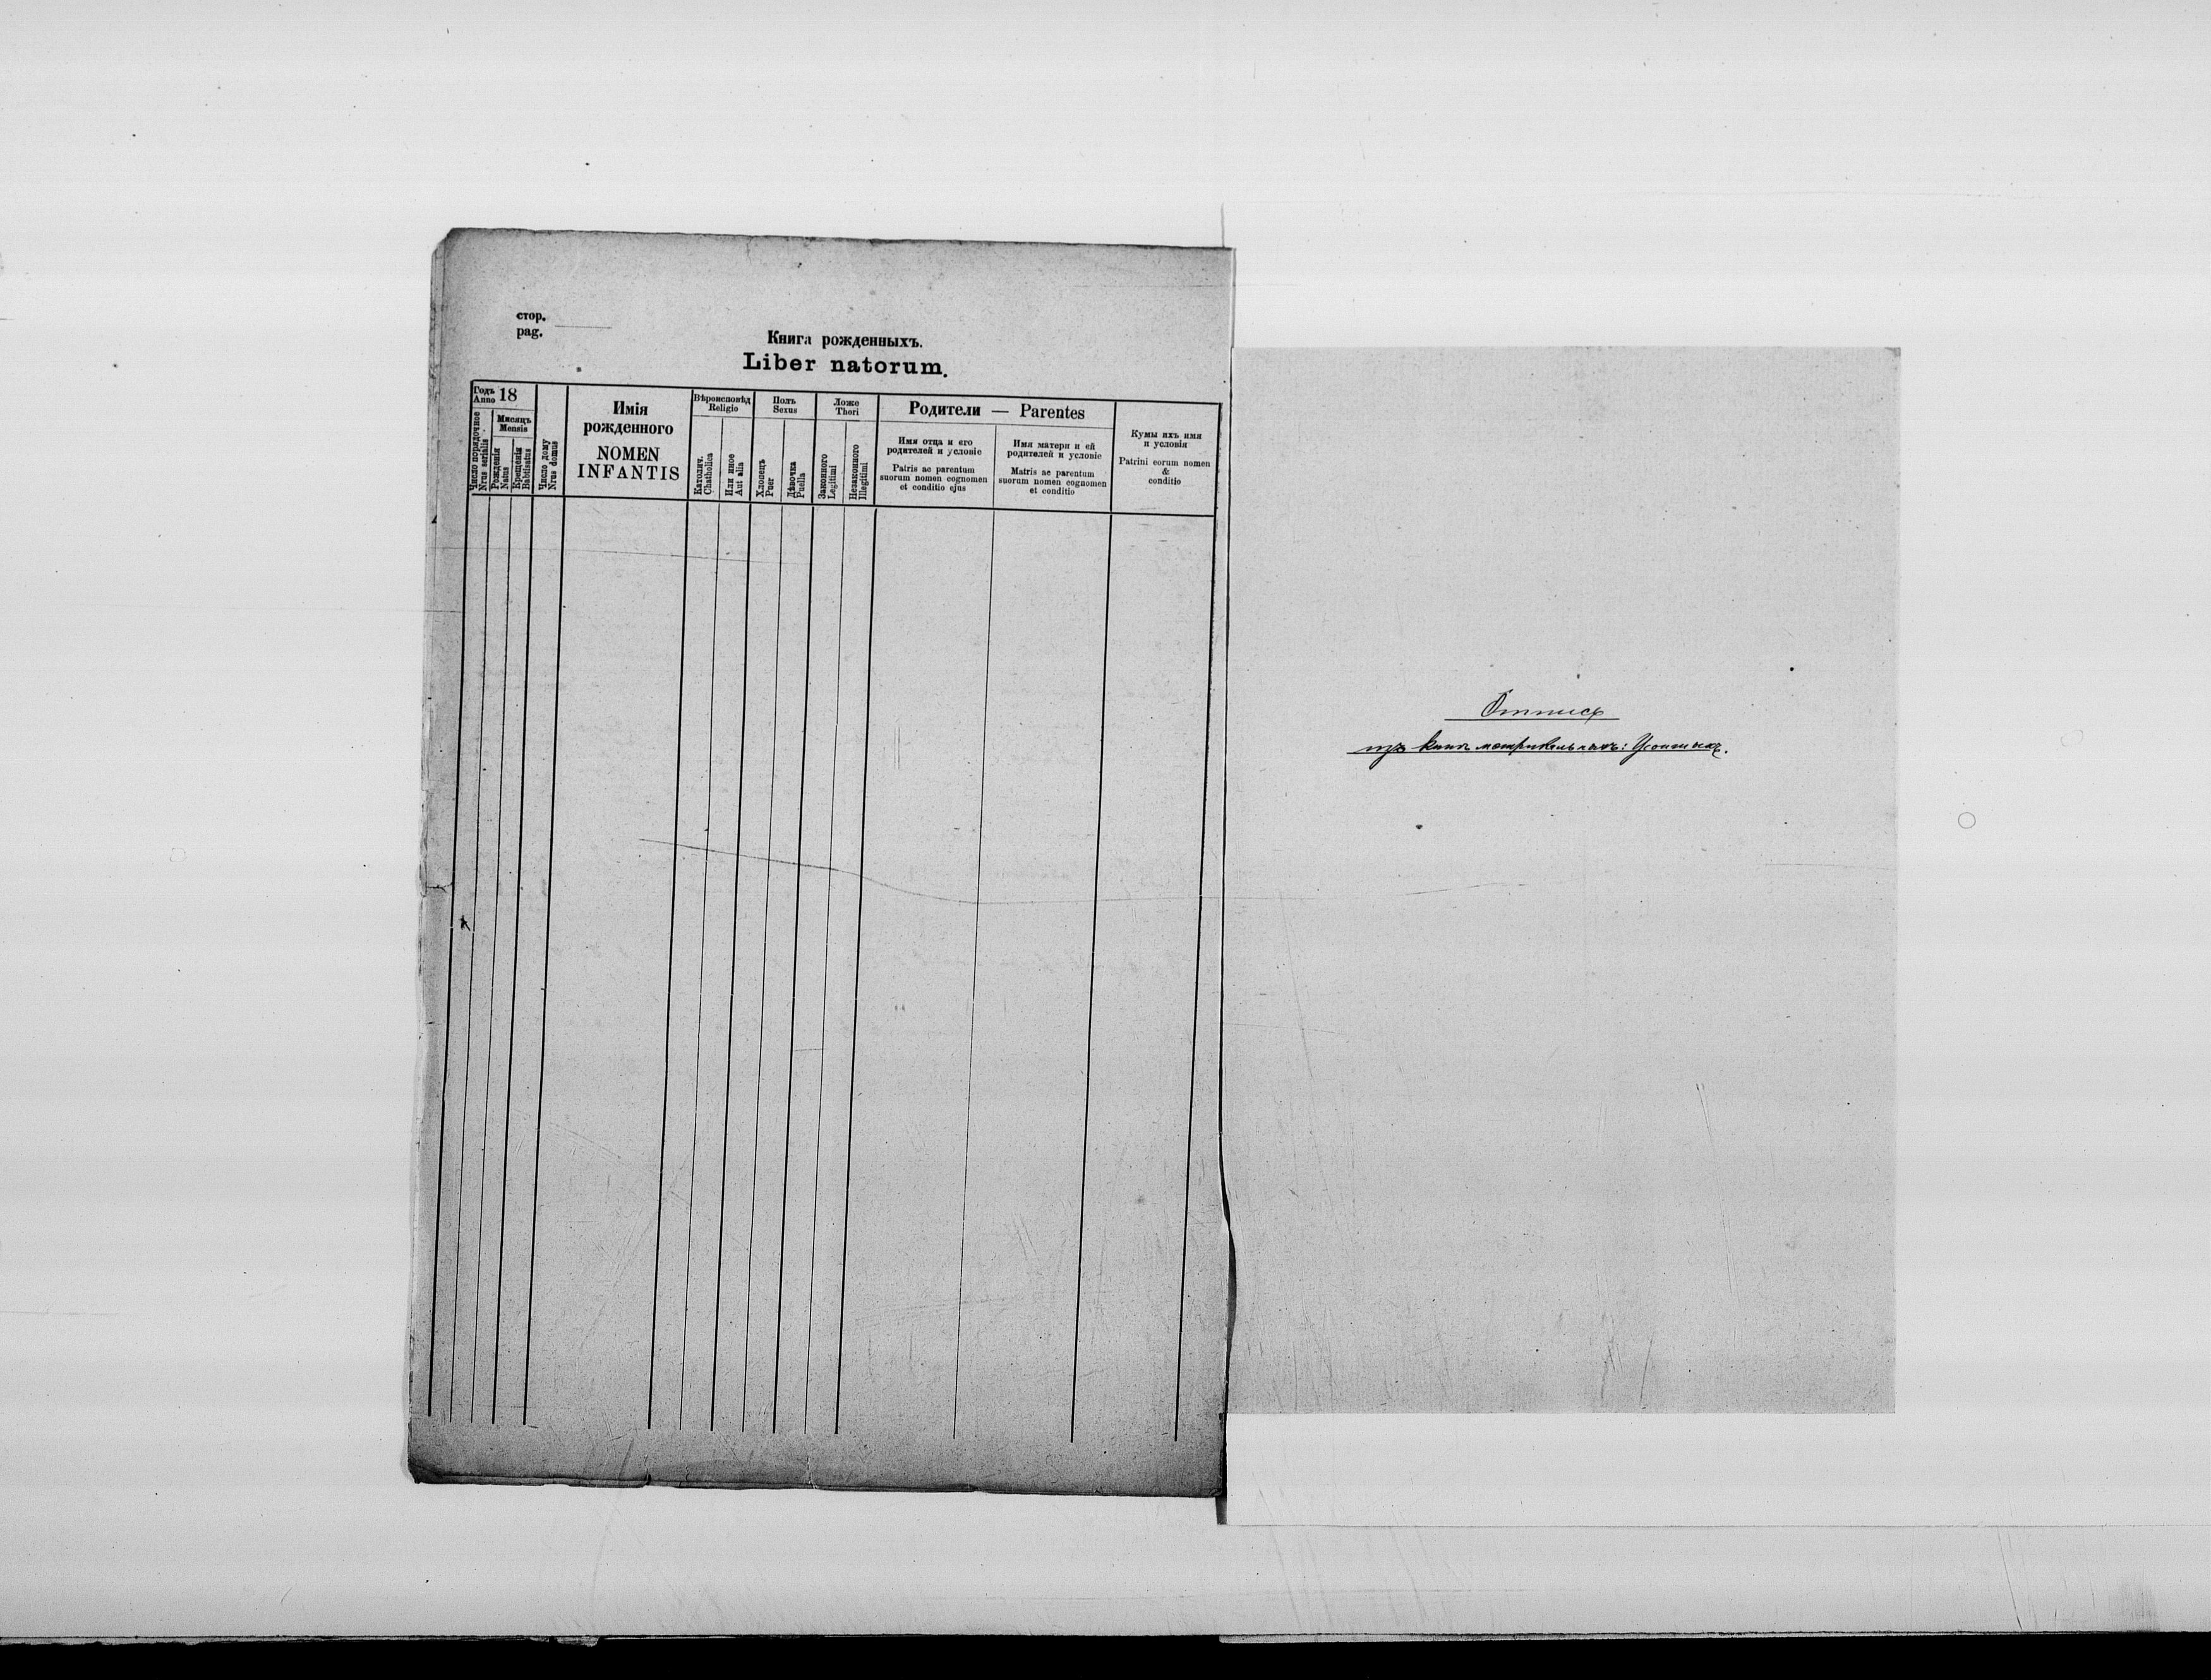 стор.
pag.
Книга рожденныхъ.
Liber natorum.
Годъ
Anno 18
Число порядочное
Nrus serialis
Мисяцъ
Mensis
Рожденія
Natus
Крещенія
Babtisatus
Число дому
Nrus domus
Имія
рожденного
NOMEN
INFANTIS
Вѣроисповѣд
Religio
Католич.
Chatholica
Или иное
Aut alia
Полъ
Sexus
Хлопецъ
Puer
Дѣвочка
Puella
Ложе
Thori
Законного
Legitimi
Незаконного
Illegitimi
Родители — Parentes
Имя отца и его
родителей и условіе
Patris ac parentum
suorum nomen cognomen
et conditio ejus
Имя матери и ей
родителей и условіе
Matris ac parentum
suorum nomen cognomen
et conditio
Кумы ихъ имя
и условія
Patrini eorum nomen
&
conditio
Отписъ
изъ книгъ метрикальныхъ: